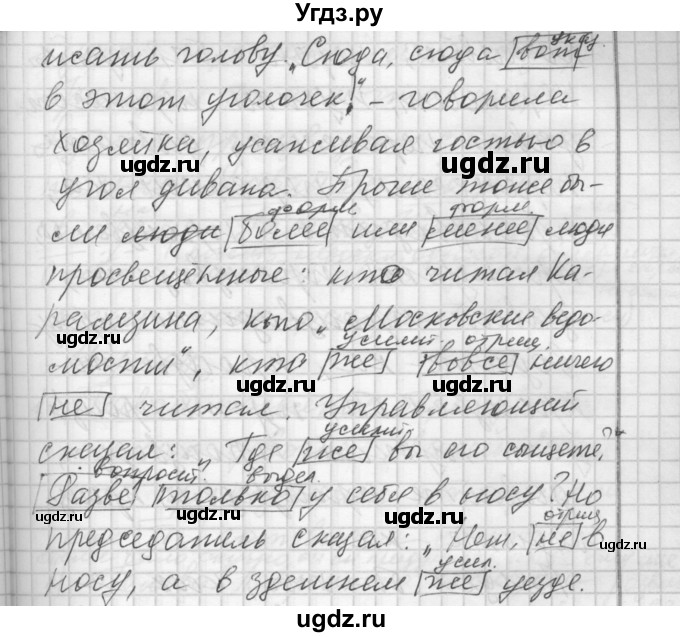 Угдз.ру
указ.
писать голову. „Сюда, сюда вот
в этот уголочек!“ – говорила
хозяйка, усаживая гостью в
ugdz.ru ugdz.ru
угол дивана. Прочие тоже бы-
форм. форм.
ли люди более или менее люди
просвещённые: кто читал Ка-
рамзина, кто „Московские ведо-
ugdz.ru
усилит. отриц.
мости“, кто же вовсе ничего
ugdz.ru ugdz.ru
не читал. Управляющий
усилит.
сказал: „Где же вы его сыщете,
вопросит. выдел.
Разве только у себя в носу?“ Но
ugdz.ru ugdz.ru ugdz.ru
отриц.
председатель сказал: „Нет, не в
усил.
носу, а в здешнем же уезде.
ugdz.ru